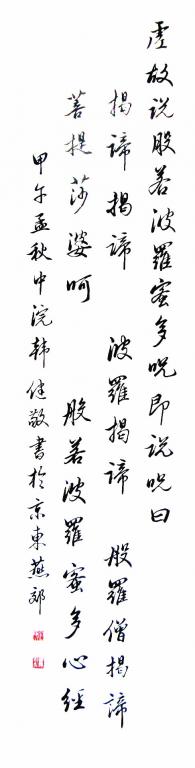 虚故说般若波羅蜜多咒即说咒曰
揭諦揭諦 波羅揭諦 般羅僧揭諦
菩提莎婆呵 般若波羅蜜多心經
甲午孟秋中浣韩佳敬書於京東燕郊